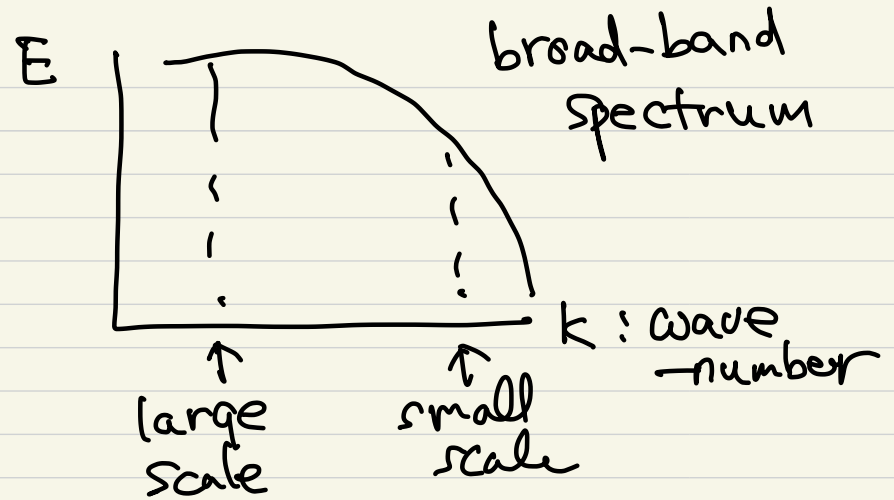 E
broad-band
spectrum
k : wave
-number
large
scale
small
scale